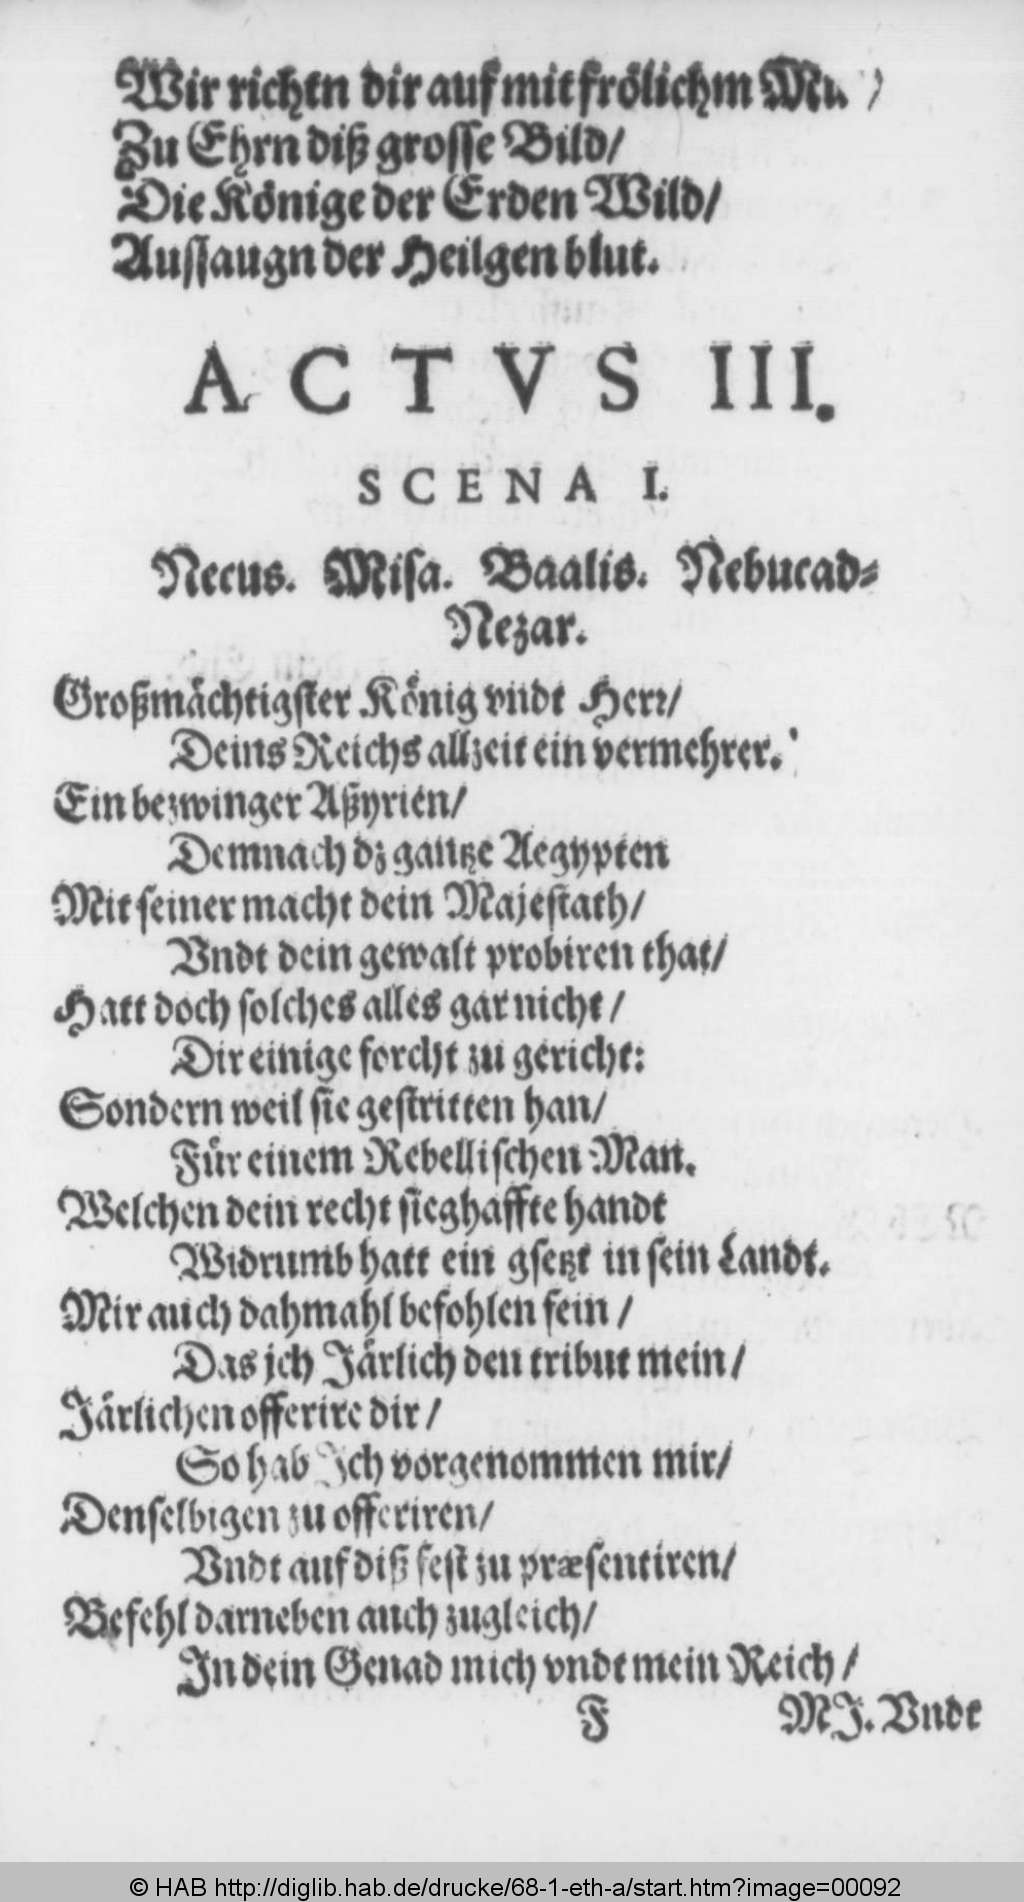 Wir richtn dir auf mit frölichm
Zu Ehrn diß grosse Bild/
Die Könige der Erden Wild/
Aussaugn der Heilgen blut.
ACTVS III.
SCENA I.
Necus. Misa. Baalis. Nebucad-
Nezar.
Großmächtigster König vndt Herr/
Deins Reichs allzeit ein vermehrer.
Ein bezwinger Aßyrien/
Demnach dz gantze Aegypten
Mit seiner macht dein Majestath/
Vndt dein gewalt probiren that/
Hatt doch solches alles gar nicht/
Dir einige forcht zu gericht:
Sondern weil sie gestritten han/
Für einem Rebellischen Man.
Welchen dein recht sieghaffte handt
Widrumb hatt ein gsetzt in sein Landt.
Mir auch dahmahl befohlen fein/
Das jch Järlich den tribut mein/
Järlichen offerire dir/
So hab Ich vorgenommen mir/
Denselbigen zu offeriren/
Vndt auf diß fest zu præsentiren/
Befehl darneben auch zugleich/
In dein Genad mich vndt mein Reich/
F MJ. Vndt
© HAB http://diglib.hab.de/drucke/68-1-eth-a/start.htm?image=00092